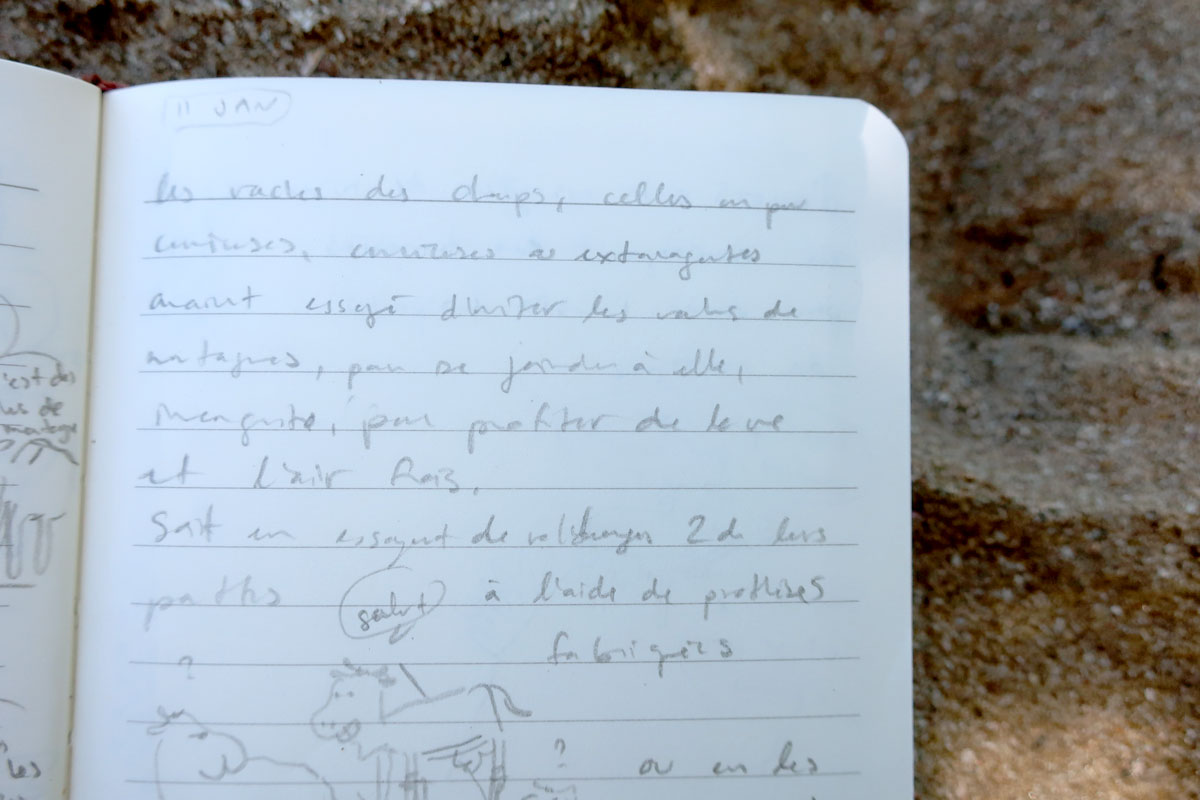 11 JAN
les vaches des champs, celles un peu
curieuses, curieuses extravagantes
avaient essayé d'imiter les vaches de
montagnes, pour se joindre à elle,
pour profiter de la vue
et l'air frais.
Soit en essayant de 2 de leurs
pattes à l'aide de prothèses
salut
fabriquées
?
? ou en les
c'est des
de
montagne
les